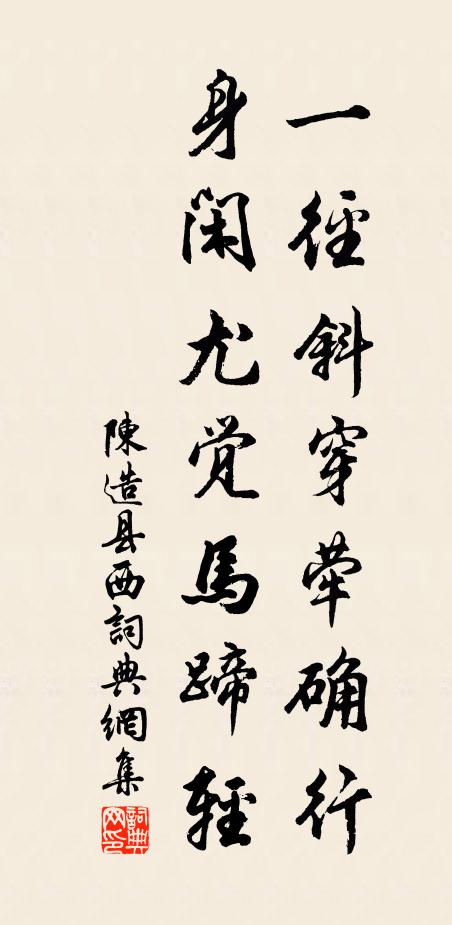 一徑斜穿荦确行
身閑尤觉馬蹄輕
陳造县西詞典網集
詞典网印